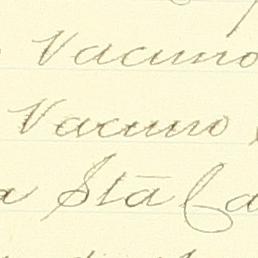 Vacuno
Vacuno
a Stā Ca